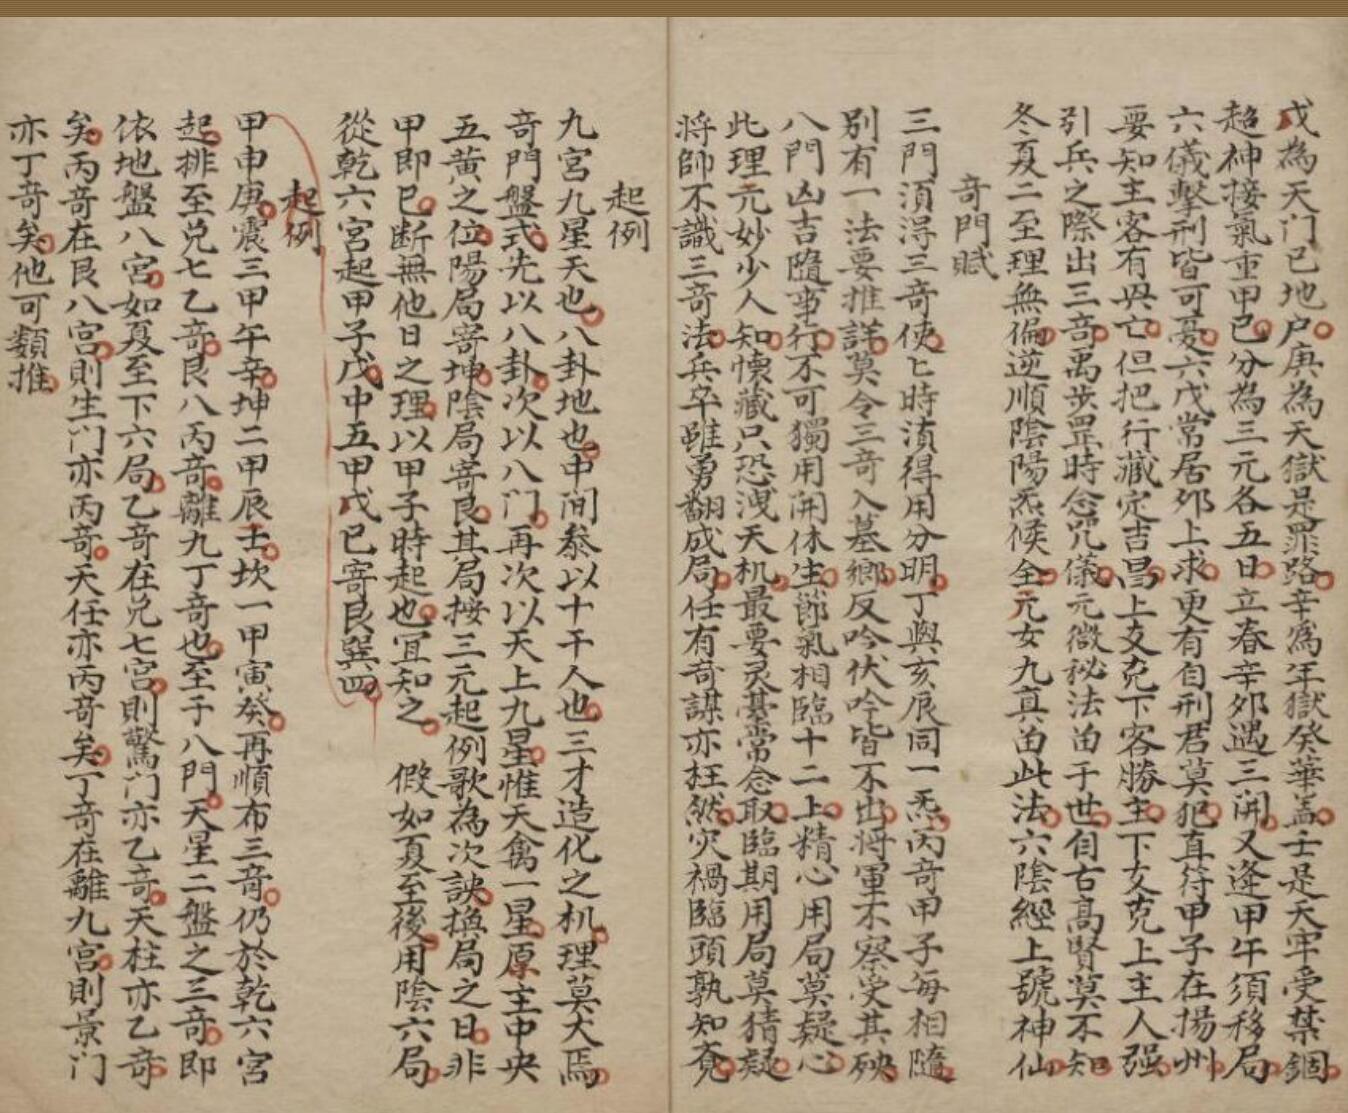 戊為天门已地户庚為天獄是罪路辛為年獄癸華盖壬是天牢受禁錮
超神接氣重甲已分為三元各五日立春辛夘遇三開又逢甲午須移局
六儀擊刑皆可憂六戊常居夘上求更有自刑君莫犯直符甲子在揚州
要知主客有興亡但把行藏定吉昌上爻克下客勝主下爻克上主人强
引兵之際出三奇禹步罡時念咒儀元微秘法留于世自古高賢莫不知
冬夏二至理無偏逆順陰陽炁候全元女九真留此法六陰經上號神仙
奇門賦
三門須淂三奇使匕時湏得用分明丁與亥辰同一炁丙奇甲子每相隨
別有一法要推詳莫令三奇入墓鄉反吟伏吟皆不出将軍不察受其殃
八門凶吉隨事行不可獨用開休生節氣相臨十二上精心用局莫疑心
此理元妙少人知懷藏只恐洩天机最要灵臺常念取臨期用局莫猜疑
将帥不識三奇法兵卒雖勇翻成局任有奇謀亦枉然灾禍臨頭孰知覔
起例
九宮九星天也八卦地也中间叅以十干人也三才造化之机理莫大焉
奇門盤式先以八卦次以八门再次以天上九星惟天禽一星原主中央
五黃之位陽局寄坤陰局寄艮其局按三元起例歌為次訣換局之日非
甲即已断無他日之理以甲子時起也宜知之 假如夏至後用陰六局
從乾六宮起甲子戊中五甲戌已寄艮巽四
起例
甲申庚震三甲午辛坤二甲辰壬坎一甲寅癸再順布三奇仍於乾六宮
起排至兑七乙奇艮八丙奇離九丁奇也至于八門天星二盤之三奇即
依地盤八宮如夏至下六局乙奇在兑七宮則驚门亦乙奇天柱亦乙奇
矣丙奇在艮八宮則生门亦丙奇天任亦丙奇矣丁奇在離九宮則景门
亦丁奇矣他可類推